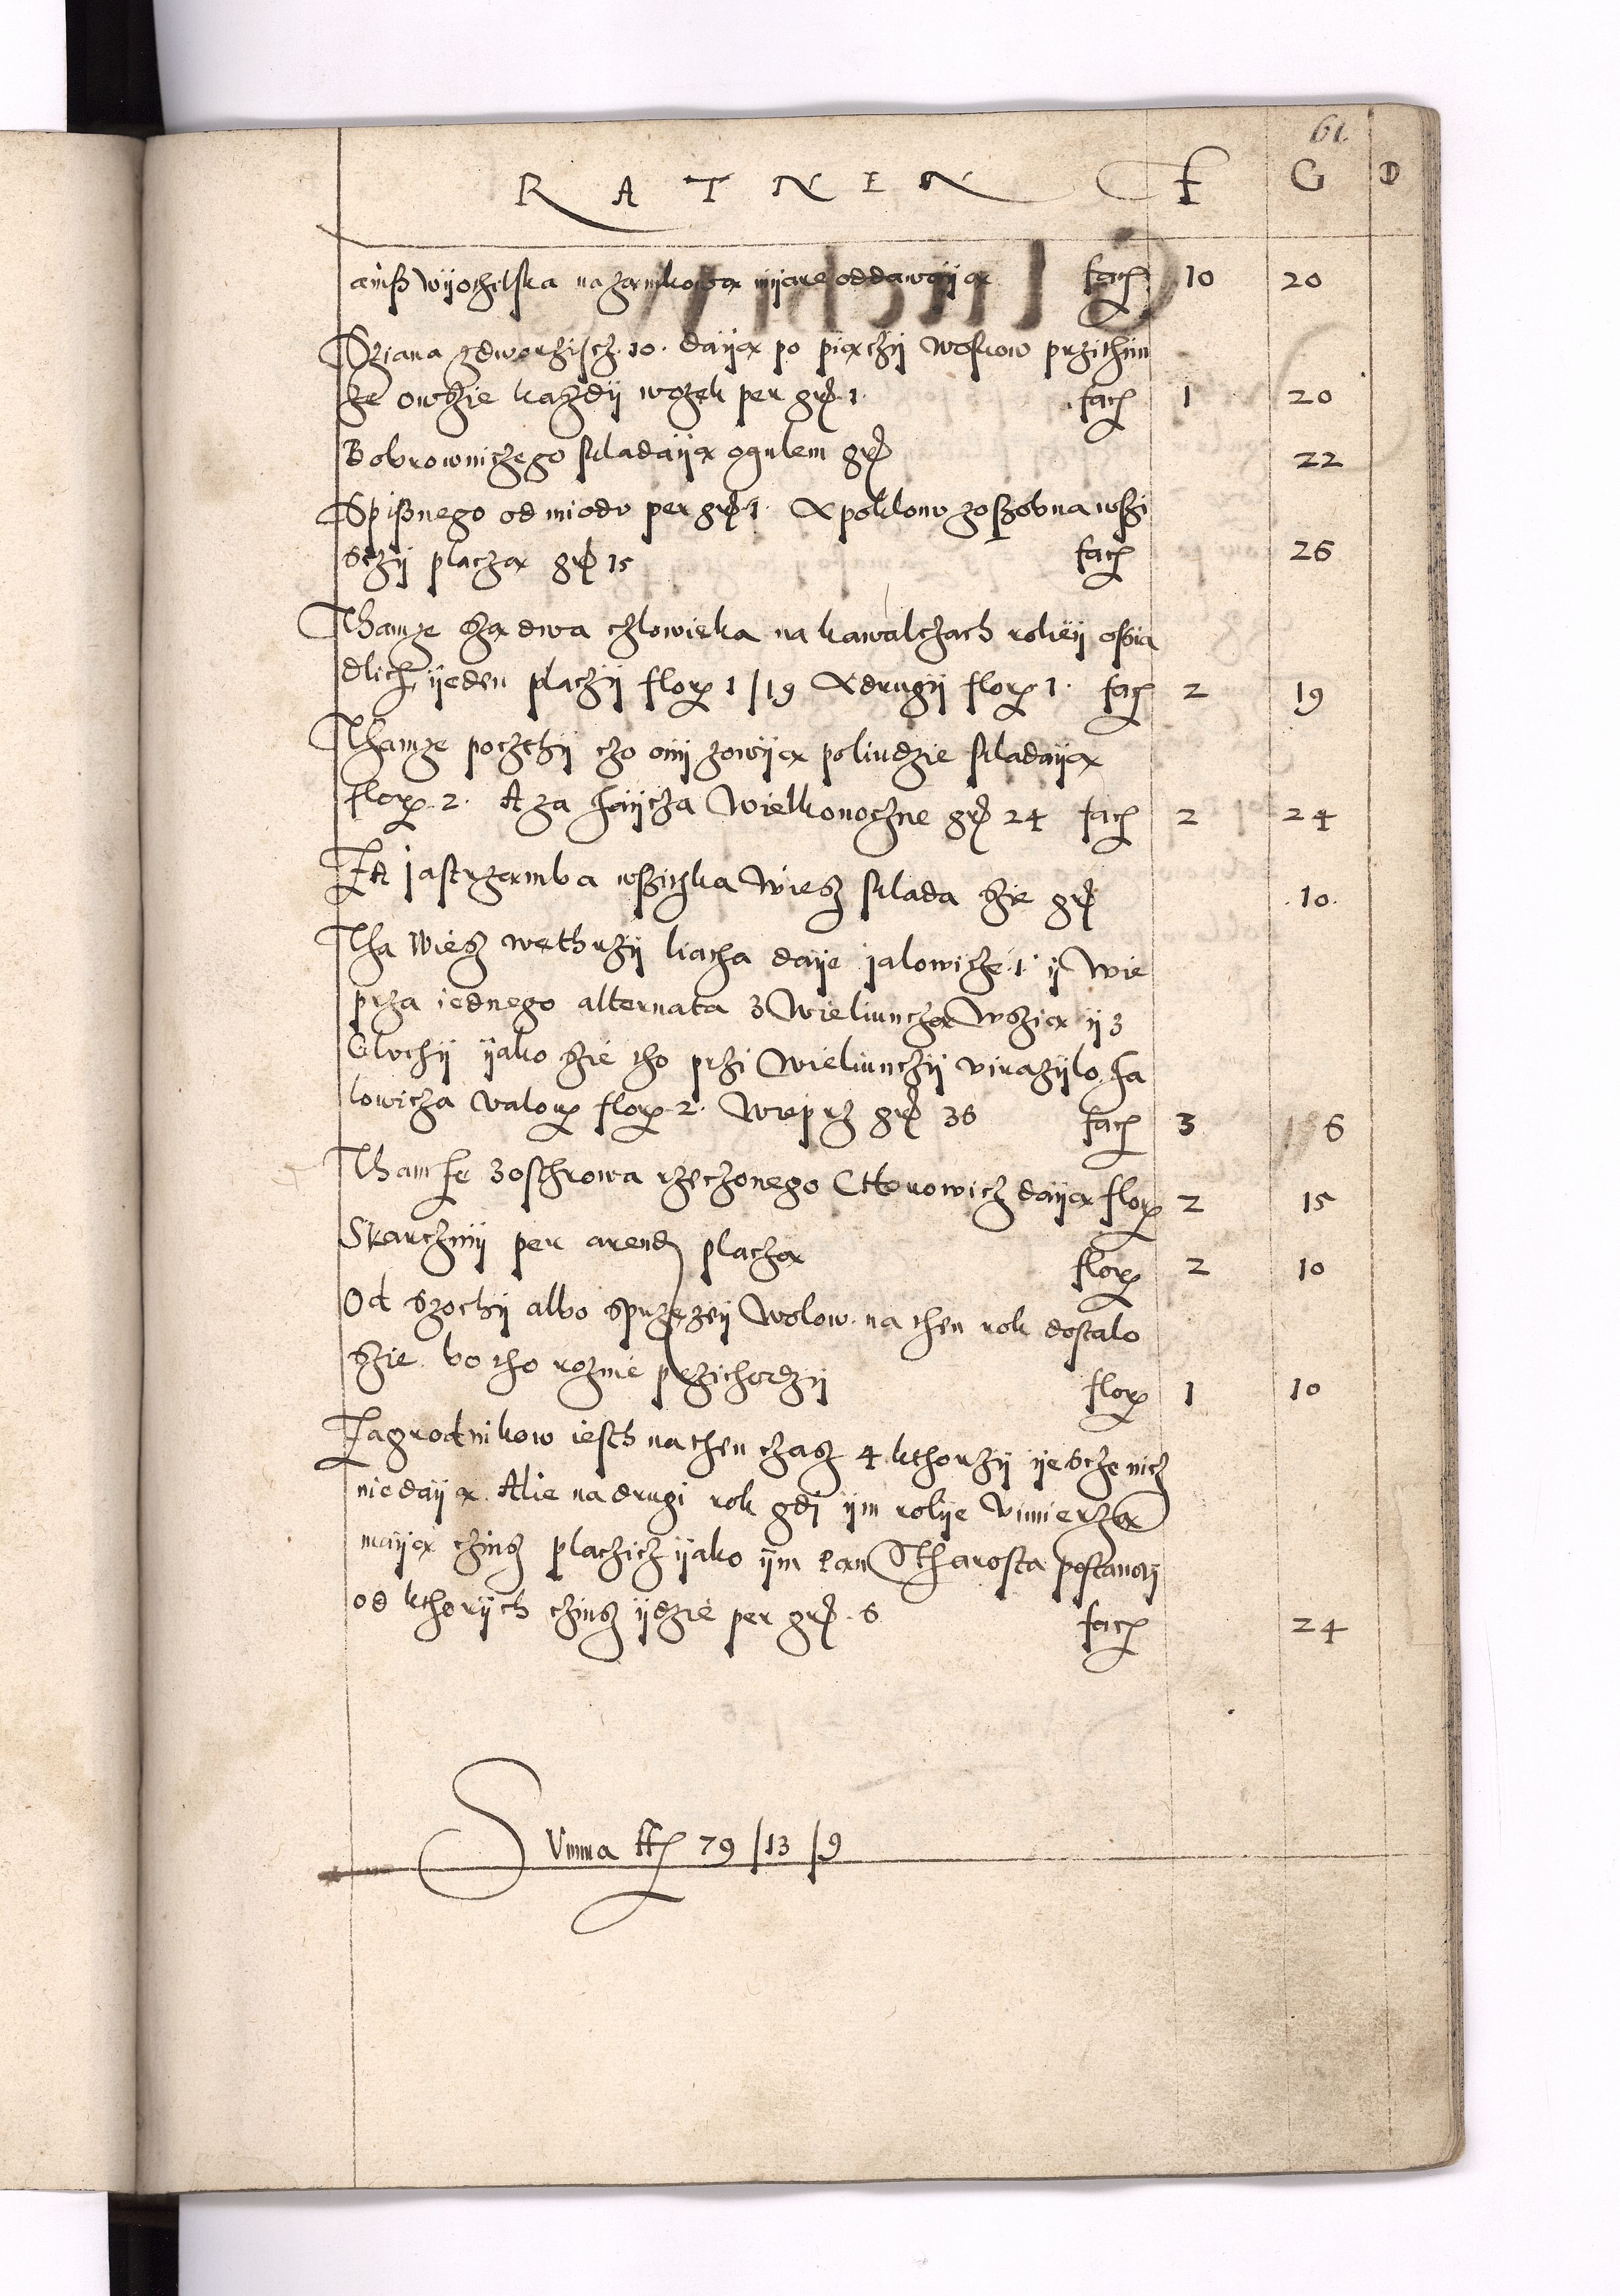 61.
R A T N E N F G D
anisz wijochelska na zamkowa mijare oddawaija facit 10 20
Dziana zdworziscz 10. daija po piaczij woszow przithim
ze owszie kazdij wozek per gr 1. facit 1 20
Bobrowniczego skladaija ogulem gr 22
Spisznego od miodv per gr 1. A poklonv zoszobna wszi
sczij placza gr 15 facit 25
Thamze sza dwa czlowieka na kawalczach roliej osia
dlich, ijeden placzij flor 1/19 A drugij flor 1. facit 2 19
Thamze poczthij czo onij zowija poliudzie skladaija
flor 2. A za Jaijcza Wielkonoczne gr 24 facit 2 24
Za jastrzemba wszitzka Wiesz sklada szie gr 10.
Tha Wiesz wethrzij liacha daije jalowicze 1. ij Wie
prza iednego alternata 3 Wieliuncza Wszia ij 3
Glvchij ijako szie tho przi Wieliunczij virazijlo. Ja
lowicza valor flor 2. Wieprz gr 36 facit 3 6
Thamze 3 osthrowa rzeczonego Ctterowicz daija flor 2 15
Skarczmij per arend placza flor 2 10
Od Szochij albo sprzezeij Wolow. na then rok dostalo
szie. bo tho roznie przichodzij flor 1 10
Zagrodnikow iesth na then czasz 4 kthorzij ijescze nicz
niedaija. Alie na drugi rok gdi ijm rolije vimierza
maija czinsz placzicz ijako ijm pan Stharosta postanovi
od kthorijch czinsz ijdzie per gr 6 facit 24
Svmma ff 79/13/9